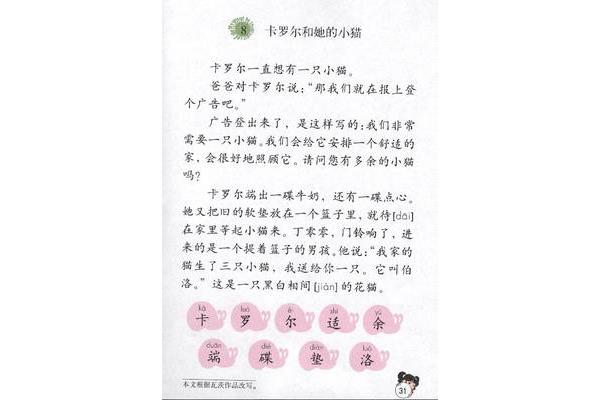 8 卡罗尔和她的小猫
卡罗尔一直想有一只小猫。
爸爸对卡罗尔说：“那我们就在报上登
个广告吧。”
广告登出来了，是这样写的：我们非常
需要一只小猫。我们会给它安排一个舒适的
家，会很好地照顾它。请问您有多余的小猫
吗？
卡罗尔端出一碟牛奶，还有一碟点心。
她又把旧的软垫放在一个篮子里，就待[dāi]
在家里等起小猫来。丁零零，门铃响了，进
来的是一个提着篮子的男孩。他说：“我家的
猫生了三只小猫，我送给你一只。它叫伯
洛。”这是一只黑白相间[jiàn]的花猫。
kǎ luó ěr shì yú
卡 罗 尔 适 余
duān dié diàn luò
端 碟 垫 洛
本文根据瓦茨作品改写。
31